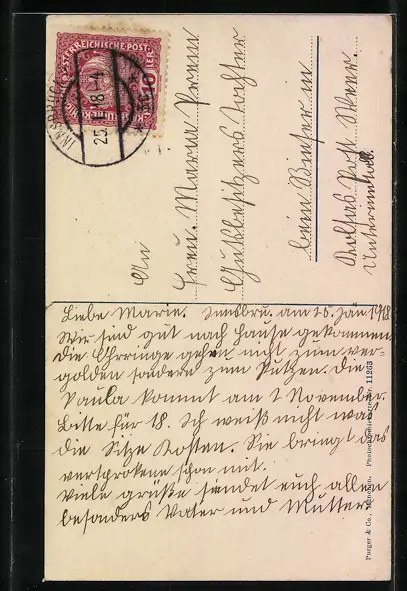 ÖSTERREICHISCHE POST
10
INNSBRUCK
25. 18-4
An
Frau Maria
Gutsbesitzers Tochter
beim
Kolsas Post Weer
Unterinntal.
Liebe Marie. Innsbru. am 25. Jän 1918
Wir sind gut nach Hause gekommen
die Ohrringe gehen nicht zum ver-
golden sondern zum Putzen. die
Paula kommt am 1 November.
Bitte für 18. Ich weiß nicht was
die Sitze kosten. Sie bringt das
versprokene schon mit.
Viele grüße sendet euch allen
besonders Vater und Mutter
Purger & Co., München. Photochromiekarte Nr. 11263